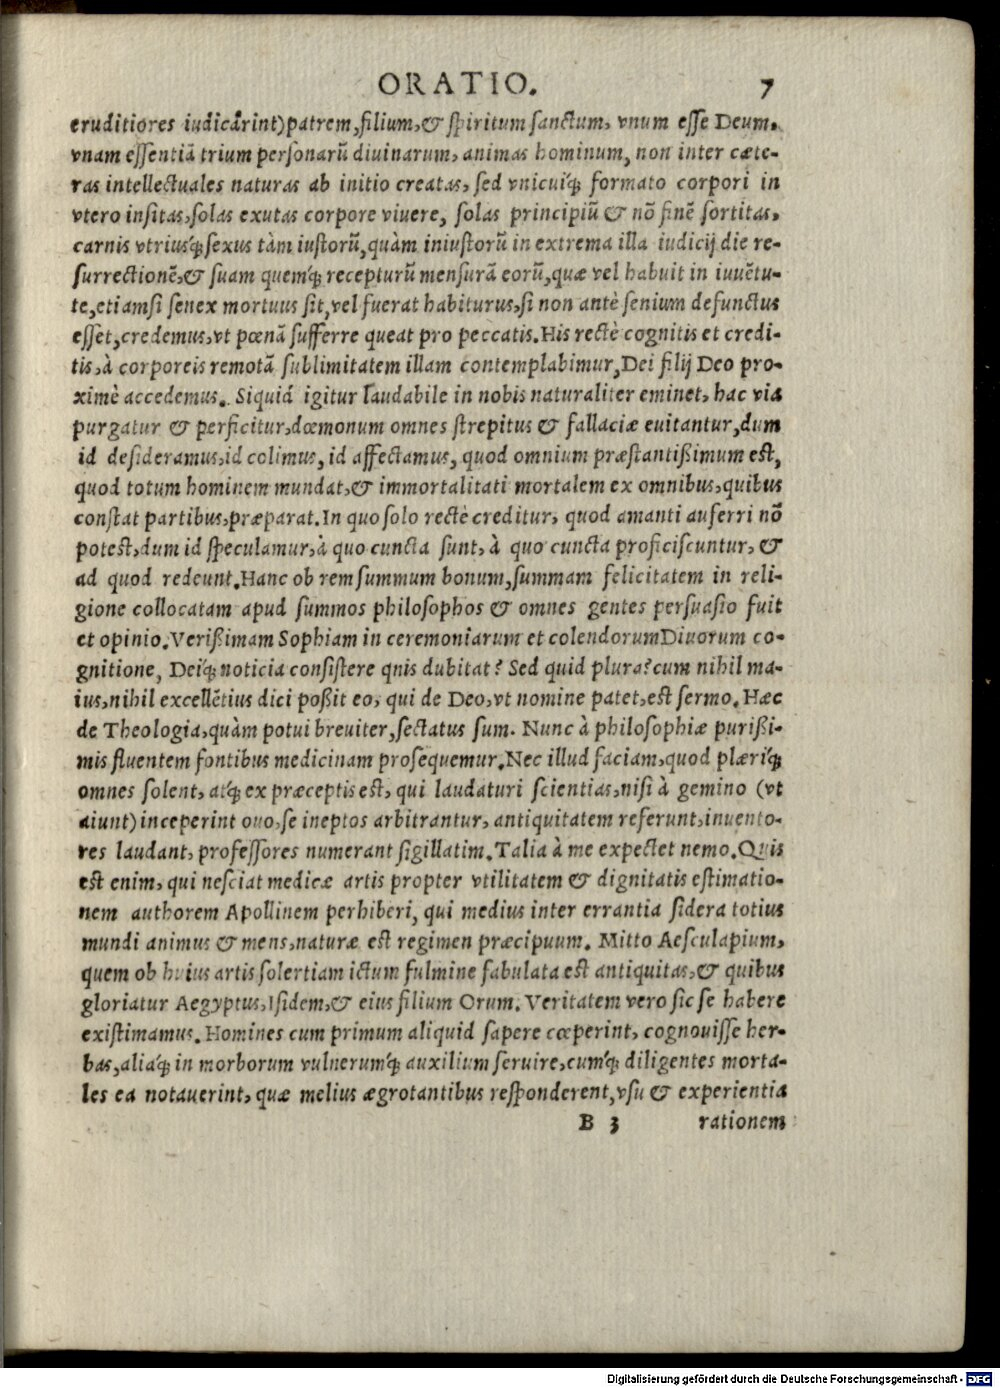 ORATIO. 7
eruditiores iudicârint) patrem, filium, & spiritum sanctum, vnum esse Deum,
vnam essentiā trium personarū diuinarum, animas hominum, non inter cæte-
ras intellectuales naturas ab initio creatas, sed vnicuiq́; formato corpori in
vtero insitas, solas exutas corpore viuere, solas principiū & nō finē sortitas,
carnis vtriusq́; sexus tàm iustorū, quàm iniustorū in extrema illa iudicij die re-
surrectionē, & suam quemq́; recepturū mensurā eorū, quæ vel habuit in iuuētu-
te, etiamsi senex mortuus sit, vel fuerat habiturus, si non antè senium defunctus
esset, credemus, vt pœnā sufferre queat pro peccatis. His rectè cognitis et credi-
tis, à corporeis remotā sublimitatem illam contemplabimur, Dei filij Deo pro-
ximè accedemus. Siquid igitur laudabile in nobis naturaliter eminet, hac via
purgatur & perficitur, dœmonum omnes strepitus & fallaciæ euitantur, dum
id desideramus, id colimus, id affectamus, quod omnium præstantißimum est,
quod totum hominem mundat, & immortalitati mortalem ex omnibus, quibus
constat partibus, præparat. In quo solo rectè creditur, quod amanti auferri nō
potest, dum id speculamur, à quo cuncta sunt, à quo cuncta proficiscuntur, &
ad quod redeunt. Hanc ob rem summum bonum, summam felicitatem in reli-
gione collocatam apud summos philosophos & omnes gentes persuasio fuit
et opinio. Verißimam Sophiam in ceremoniarum et colendorum Diuorum co-
gnitione, Deiq́; noticia consistere qnis dubitat? Sed quid plura? cum nihil ma-
ius, nihil excellētius dici poßit eo, qui de Deo, vt nomine patet, est sermo. Hæc
de Theologia, quàm potui breuiter, sectatus sum. Nunc à philosophiæ purißi-
mis fluentem fontibus medicinam prosequemur. Nec illud faciam, quod plæriq́;
omnes solent, atq́; ex præceptis est, qui laudaturi scientias, nisi à gemino (vt
aiunt) inceperint ouo, se ineptos arbitrantur, antiquitatem referunt, inuento-
res laudant, professores numerant sigillatim. Talia à me expectet nemo. Quis
est enim, qui nesciat medicæ artis propter vtilitatem & dignitatis estimatio-
nem authorem Apollinem perhiberi, qui medius inter errantia sidera totius
mundi animus & mens, naturæ est regimen præcipuum. Mitto Aesculapium,
quem ob huius artis solertiam ictum fulmine fabulata est antiquitas, & quibus
gloriatur Aegyptus, Isidem, & eius filium Orum. Veritatem vero sic se habere
existimamus. Homines cum primum aliquid sapere cœperint, cognouisse her-
bas, aliaq́; in morborum vulnerumq́; auxilium seruire, cumq́; diligentes morta-
les ea notauerint, quæ melius ægrotantibus responderent, vsu & experientia
B 3 rationem
Digitalisierung gefördert durch die Deutsche Forschungsgemeinschaft - DFG